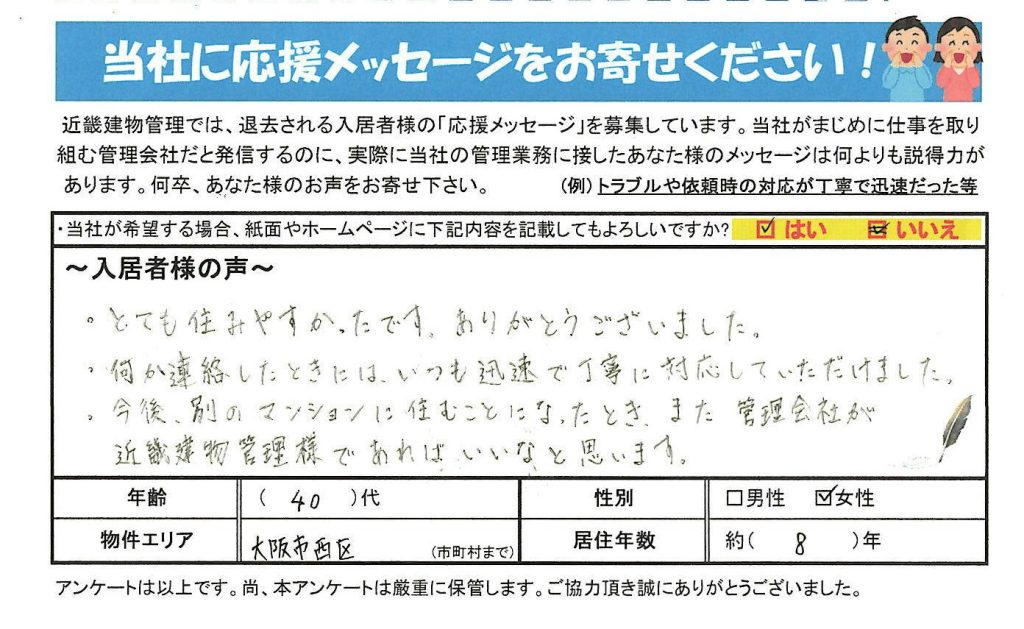 当社に応援メッセージをお寄せください!
近畿建物管理では、退去される入居者様の「応援メッセージ」を募集しています。当社がまじめに仕事を取り
組む管理会社だと発信するのに、実際に当社の管理業務に接したあなた様のメッセージは何よりも説得力が
あります。何卒、あなた様のお声をお寄せ下さい。 (例)トラブルや依頼時の対応が丁寧で迅速だった等
・当社が希望する場合、紙面やホームページに下記内容を記載してもよろしいですか? ☑はい ☑いいえ
～入居者様の声～
・とても住みやすかったです。ありがとうございました。
・何か連絡したときには、いつも迅速で丁寧に対応していただけました。
・今後、別のマンションに住むことになったとき、また管理会社が
近畿建物管理様であればいいなと思います。
年齢 (40)代 性別 □男性 ☑女性
物件エリア 大阪市西区 (市町村まで) 居住年数 約(8)年
アンケートは以上です。尚、本アンケートは厳重に保管します。ご協力頂き誠にありがとうございました。